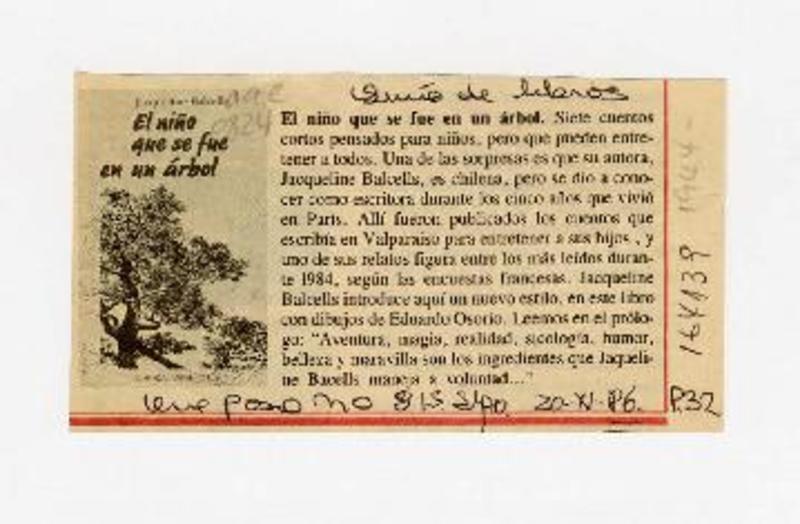 de libros
El niño
que se fue
en un árbol
El niño que se fue en un árbol. Siete cuentos
cortos pensados para niños, pero que pueden entre-
tener a todos. Una de las sorpresas es que su autora,
Jacqueline Balcells, es chilena, pero se dio a cono-
cer como escritora durante los cinco años que vivió
en París. Allí fueron publicados los cuentos que
escribía en Valparaíso para entretener a sus hijos , y
uno de sus relatos figura entre los más leídos duran-
te 1984, según las encuestas francesas. Jacqueline
Balcells introduce aquí un nuevo estilo, en este libro
con dibujos de Eduardo Osorio. Leemos en el prólo-
go: "Aventura, magia, realidad, sicología, humor,
belleza y maravilla son los ingredientes que Jaqueli-
ne Bacells maneja a voluntad..."
Stgo. 20-XI-86. P.32
164139